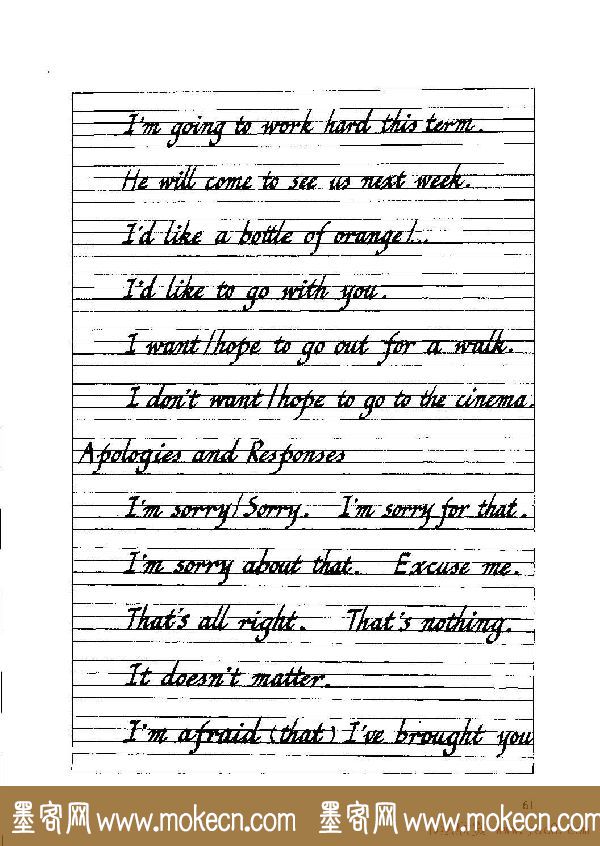 I'm going to work hard this term.
He will come to see us next week.
I'd like a bottle of orange/...
I'd like to go with you.
I want/hope to go out for a walk.
I don't want/hope to go to the cinema.
Apologies and Responses
I'm sorry/Sorry. I'm sorry for that.
I'm sorry about that. Excuse me.
That's all right. That's nothing.
It doesn't matter.
I'm afraid (that) I've brought you
61
墨客网 www.mokecn.com 墨客网 www.mokecn.com